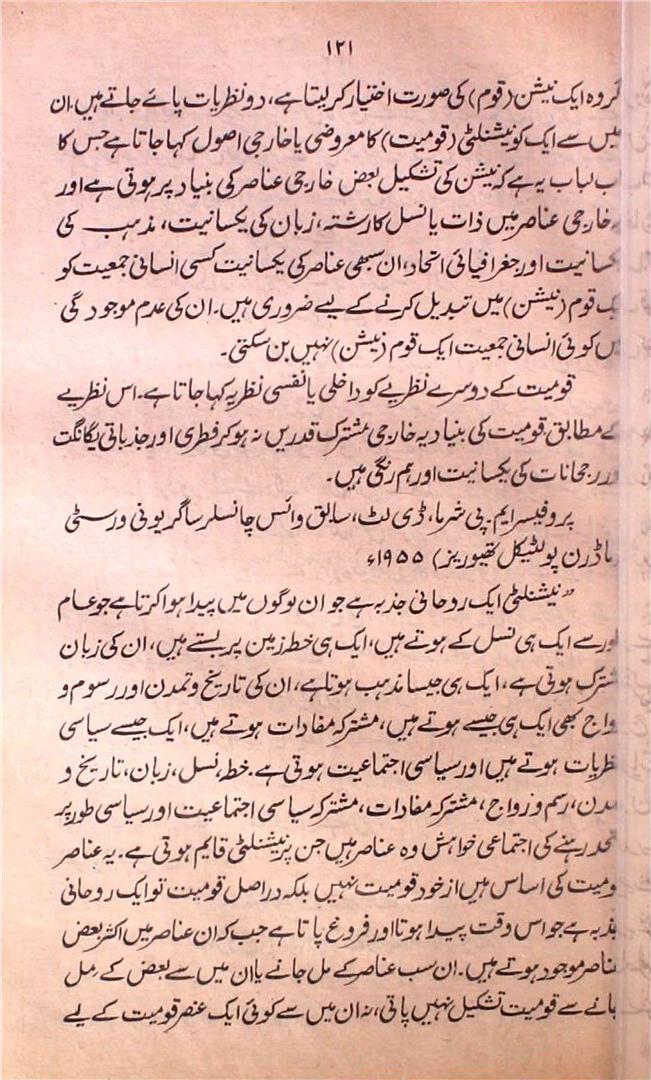 ۱۲۱
گروہ ایک نیشن (قوم) کی صورت اختیار کر لیتا ہے، دو نظریات پائے جاتے ہیں۔ ان
میں سے ایک کو نیشنلٹی (قومیت) کا معروضی یا خارجی اصول کہا جاتا ہے جس کا
لب لباب یہ ہے کہ نیشن کی تشکیل بعض خارجی عناصر کی بنیاد پر ہوتی ہے اور
خارجی عناصر میں ذات یا نسل کا رشتہ، زبان کی یکسانیت، مذہب کی
یکسانیت اور جغرافیائی اتحاد، ان سبھی عناصر کی یکسانیت کسی انسانی جمعیت کو
ایک قوم (نیشن) میں تبدیل کرنے کے لیے ضروری ہیں۔ ان کی عدم موجودگی
میں کوئی انسانی جمعیت ایک قوم (نیشن) نہیں بن سکتی۔
قومیت کے دوسرے نظریے کو داخلی یا نفسی نظریہ کہا جاتا ہے۔ اس نظریے
کے مطابق قومیت کی بنیاد یہ خارجی مشترک قدریں نہ ہو کر فطری اور جذباتی یگانگت
اور رجحانات کی یکسانیت اور ہم رنگی ہیں۔
پروفیسر ایم۔ پی شرما، ڈی لٹ، سابق وائس چانسلر ساگر یونی ورسٹی
ماڈرن پولٹیکل تھیوریز) ۱۹۵۵ء
"نیشنلٹی ایک روحانی جذبہ ہے جو ان لوگوں میں پیدا ہوا کرتا ہے جو عام
طور سے ایک ہی نسل کے ہوتے ہیں، ایک ہی خطہ زمین پر بستے ہیں، ان کی زبان
مشترک ہوتی ہے، ایک ہی جیسا مذہب ہوتا ہے، ان کی تاریخ و تمدن اور رسوم و
رواج بھی ایک ہی جیسے ہوتے ہیں، مشترکہ مفادات ہوتے ہیں، ایک جیسے سیاسی
نظریات ہوتے ہیں اور سیاسی اجتماعیت ہوتی ہے۔ خطہ، نسل، زبان، تاریخ و
تمدن، رسم و رواج، مشترکہ مفادات، مشترکہ سیاسی اجتماعیت اور سیاسی طور پر
متحد رہنے کی اجتماعی خواہش وہ عناصر ہیں جن پر نیشنلٹی قایم ہوتی ہے۔ یہ عناصر
قومیت کی اساس ہیں از خود قومیت نہیں بلکہ دراصل قومیت تو ایک روحانی
جذبہ ہے جو اس وقت پیدا ہوتا اور فروغ پاتا ہے جب کہ ان عناصر میں اکثر بعض
عناصر موجود ہوتے ہیں۔ ان سب عناصر کے مل جانے یا ان میں سے بعض کے مل
جانے سے قومیت تشکیل نہیں پاتی، نہ ان میں سے کوئی ایک عنصر قومیت کے لیے